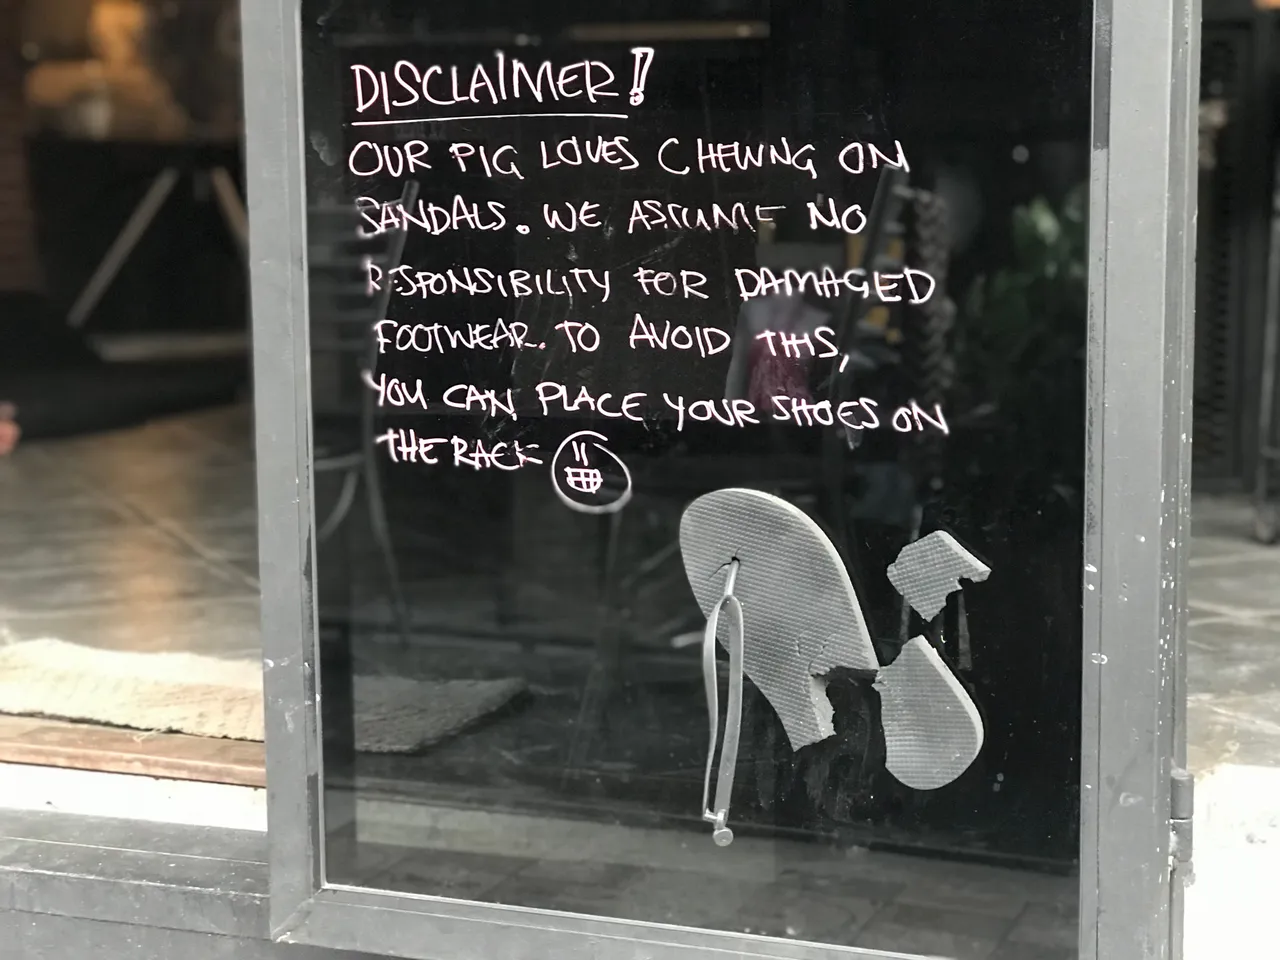 DISCLAIMER!
OUR PIG LOVES CHEWING ON
SANDALS. WE ASSUME NO
RESPONSIBILITY FOR DAMAGED
FOOTWEAR. TO AVOID THIS,
YOU CAN PLACE YOUR SHOES ON
THE RACK